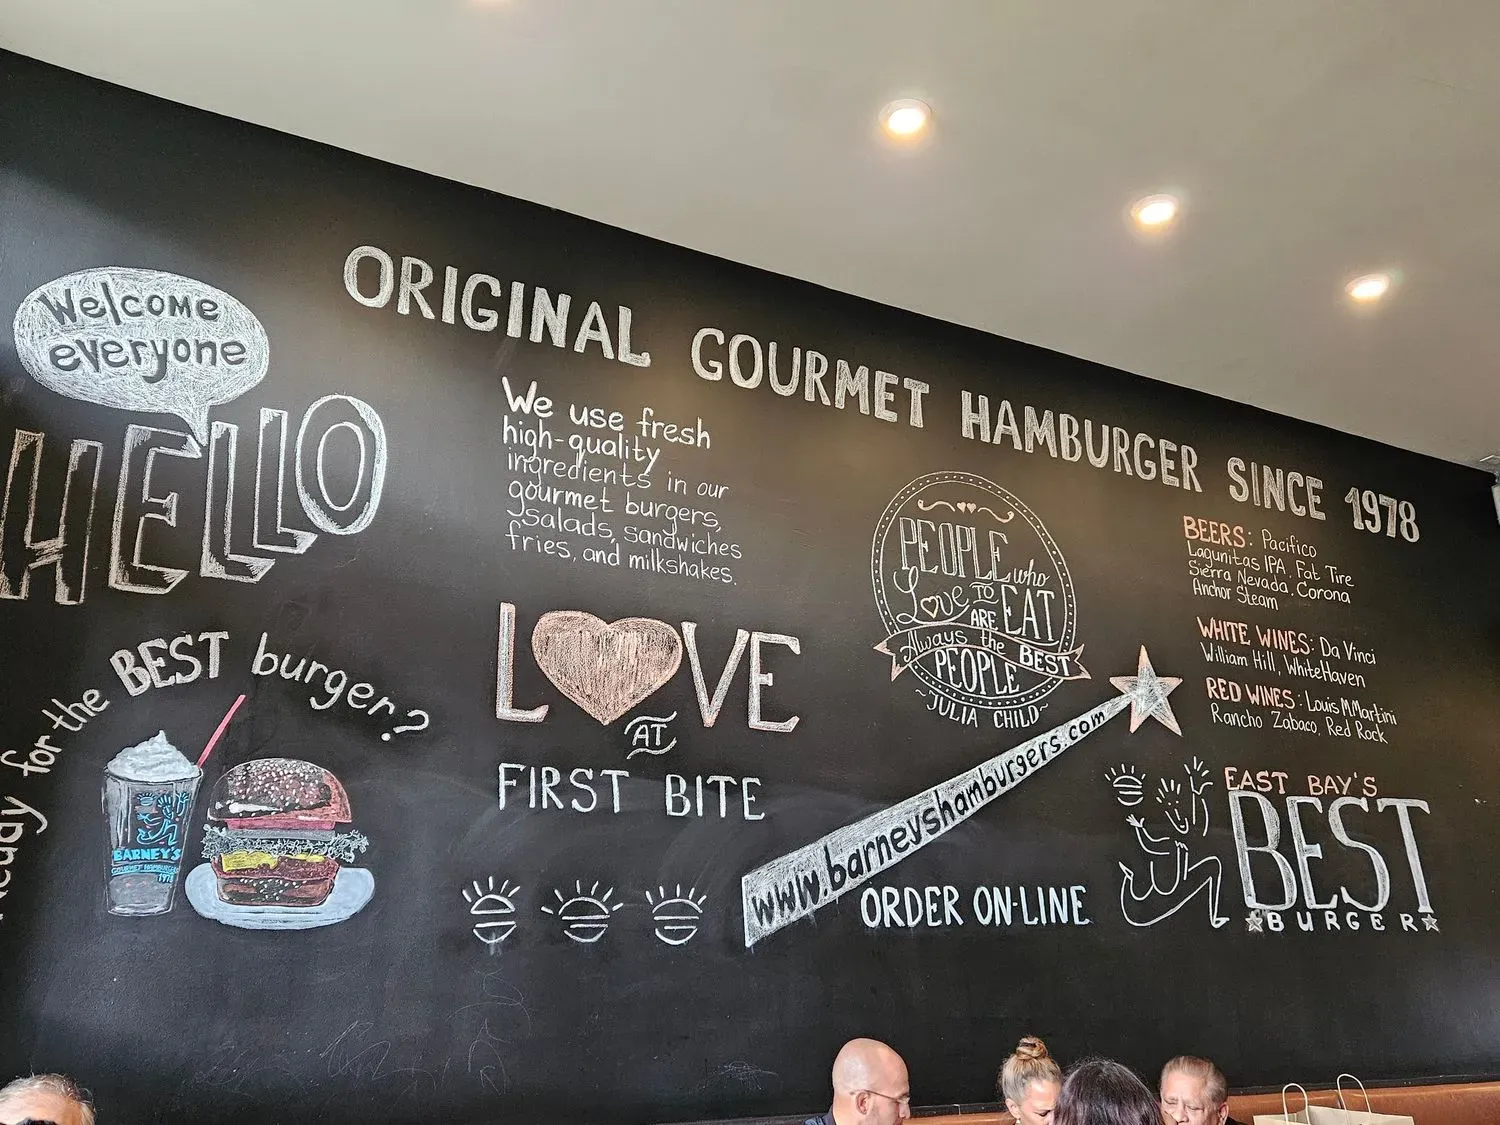 ORIGINAL GOURMET HAMBURGER SINCE 1978
Welcome
everyone
HELLO
Ready for the BEST burger?
BARNEY'S
GOURMET HAMBURGERS
1978
We use fresh
high-quality
ingredients in our
gourmet burgers,
salads, sandwiches
fries, and milkshakes.
LOVE
AT
FIRST BITE
PEOPLE who
Love TO EAT
ARE
Always the BEST
PEOPLE
~JULIA CHILD~
www.barneyshamburgers.com
ORDER ON-LINE
BEERS: Pacifico
Lagunitas IPA, Fat Tire
Sierra Nevada, Corona
Anchor Steam
WHITE WINES: Da Vinci
William Hill, WhiteHaven
RED WINES: Louis M.Martini
Rancho Zabaco, Red Rock
EAST BAY'S
BEST
BURGER